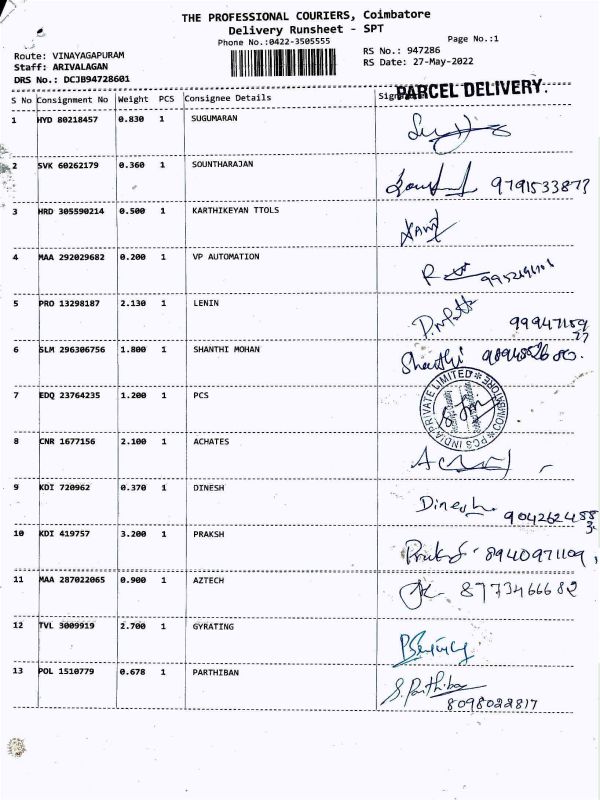 THE PROFESSIONAL COURIERS, Coimbatore
Delivery Runsheet - SPT
Phone No.:0422-3505555
Page No.:1
Route: VINAYAGAPURAM
RS No.: 947286
Staff: ARIVALAGAN
RS Date: 27-May-2022
DRS No.: DCJB94728601
PARCEL DELIVERY.
S No Consignment No Weight PCS Consignee Details
1 HYD 80218457 0.830 1 SUGUMARAN
2 SVK 60262179 0.360 1 SOUNTHARAJAN
9791533877
3 HRD 305590214 0.500 1 KARTHIKEYAN TTOLS
4 MAA 292029682 0.200 1 VP AUTOMATION
5 PRO 13298187 2.130 1 LENIN
99947159
27
6 SLM 296306756 1.800 1 SHANTHI MOHAN
Shanthi
7 EDQ 23764235 1.200 1 PCS
PCS INDIA PRIVATE LIMITED * COIMBATORE *
8 CNR 1677156 2.100 1 ACHATES
9 KDI 720962 0.370 1 DINESH
Dinesh
10 KDI 419757 3.200 1 PRAKSH
8940971109,
11 MAA 287022065 0.900 1 AZTECH
8773466682
12 TVL 3009919 2.700 1 GYRATING
13 POL 1510779 0.678 1 PARTHIBAN
S. Parthiban
8098022817